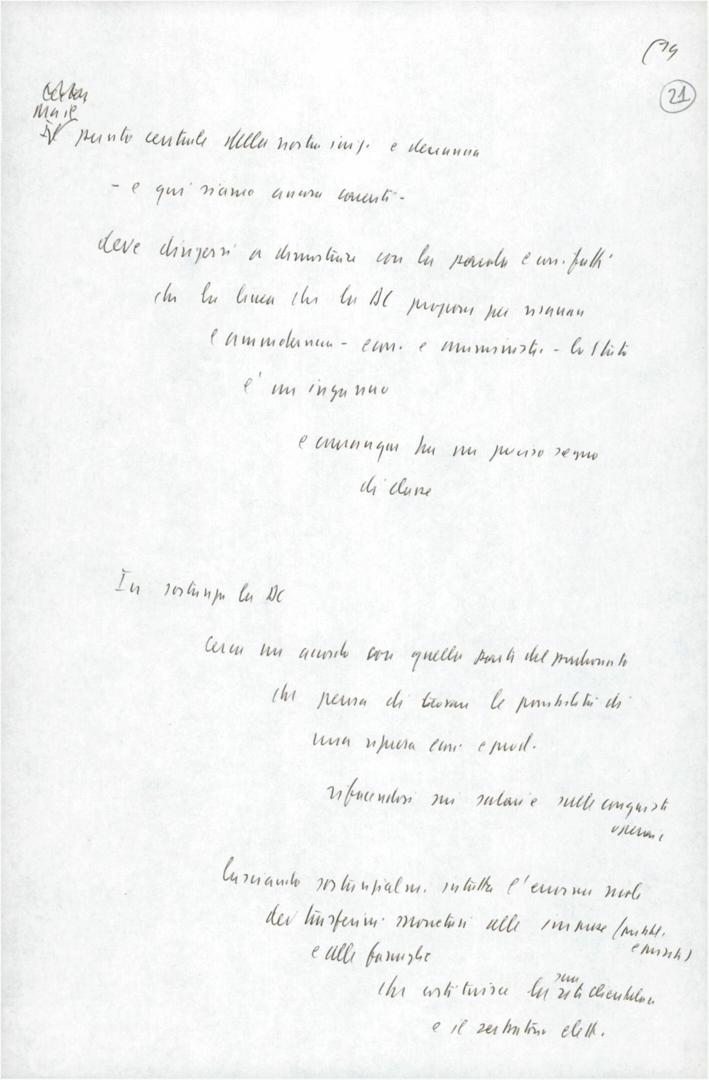 21
Ma il
Il punto centrale della nostra e denuncia
- e qui siamo ancora carenti -
deve dirigersi a dimostrare con la parola e con fatti
che la linea che la DC propone per risanare
e ammodernare - econ. e amministr. - lo Stato
è un inganno
e comunque ha un preciso segno
di classe
In sostanza la DC
cerca un accordo con quella parte del padronato
che pensa di trovare le possibilità di
una ripresa econ. e prod.
rifacendosi sui salari e sulle conquiste
operaie
lasciando sostanzialm. intatta l'enorme mole
dei trasferim. monetari alle imprese (pubbl.
e private)
e alle famiglie
che costituisce la sua rete clientelare
e il serbatoio elett.